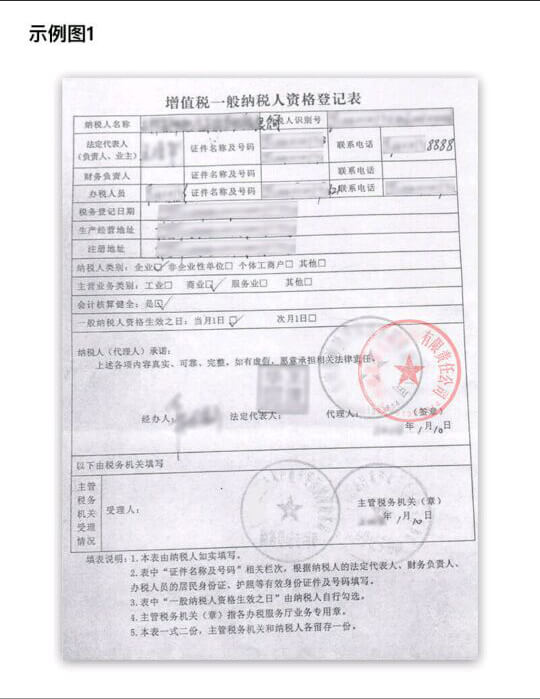 示例图1
增值税一般纳税人资格登记表
纳税人名称 纳税人识别号
法定代表人（负责人、业主） 证件名称及号码 联系电话 8888
财务负责人 证件名称及号码 联系电话
办税人员 证件名称及号码 联系电话
税务登记日期
生产经营地址
注册地址
纳税人类别：企业☑ 非企业性单位□ 个体工商户□ 其他□
主营业务类别：工业□ 商业☑ 服务业□ 其他□
会计核算健全：是☑
一般纳税人资格生效之日：当月1日☑ 次月1日□
纳税人（代理人）承诺：
上述各项内容真实、可靠、完整。如有虚假，愿意承担相关法律责任。
有限责任公司
经办人： 法定代表人： 代理人： （签章）
年1月10日
以下由税务机关填写
主管税务机关受理情况
受理人：
主管税务机关（章）
年1月10日
填表说明：1.本表由纳税人如实填写。
2.表中“证件名称及号码”相关栏次，根据纳税人的法定代表人、财务负责人、
办税人员的居民身份证、护照等有效身份证件及号码填写。
3.表中“一般纳税人资格生效之日”由纳税人自行勾选。
4.主管税务机关（章）指各办税服务厅业务专用章。
5.本表一式二份，主管税务机关和纳税人各留存一份。